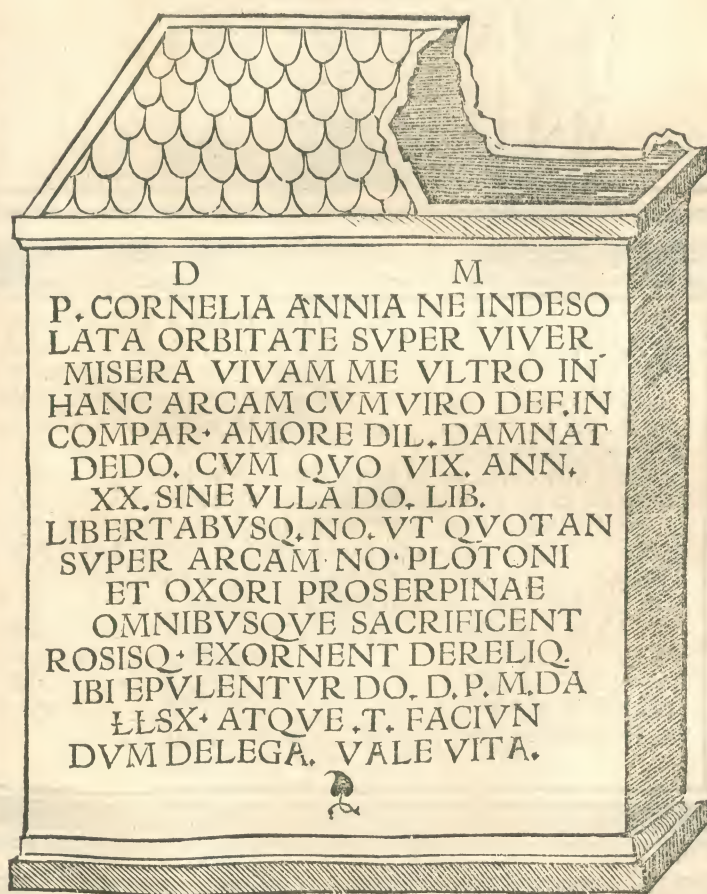 D M
P. CORNELIA ANNIA NE INDESO
LATA ORBITATE SVPER VIVER
MISERA VIVAM ME VLTRO IN
HANC ARCAM CVM VIRO DEF. IN
COMPAR. AMORE DIL. DAMNAT
DEDO. CVM QVO VIX. ANN.
XX. SINE VLLA DO. LIB.
LIBERTABVSQ. NO. VT QVOTAN
SVPER ARCAM NO. PLOTONI
ET OXORI PROSERPINAE
OMNIBVSQVE SACRIFICENT
ROSISQ. EXORNENT DERELIQ.
IBI EPVLENTVR DO. D. P. M. DA
ȽȽSX. ATQVE .T. FACIVN
DVM DELEGA. VALE VITA.